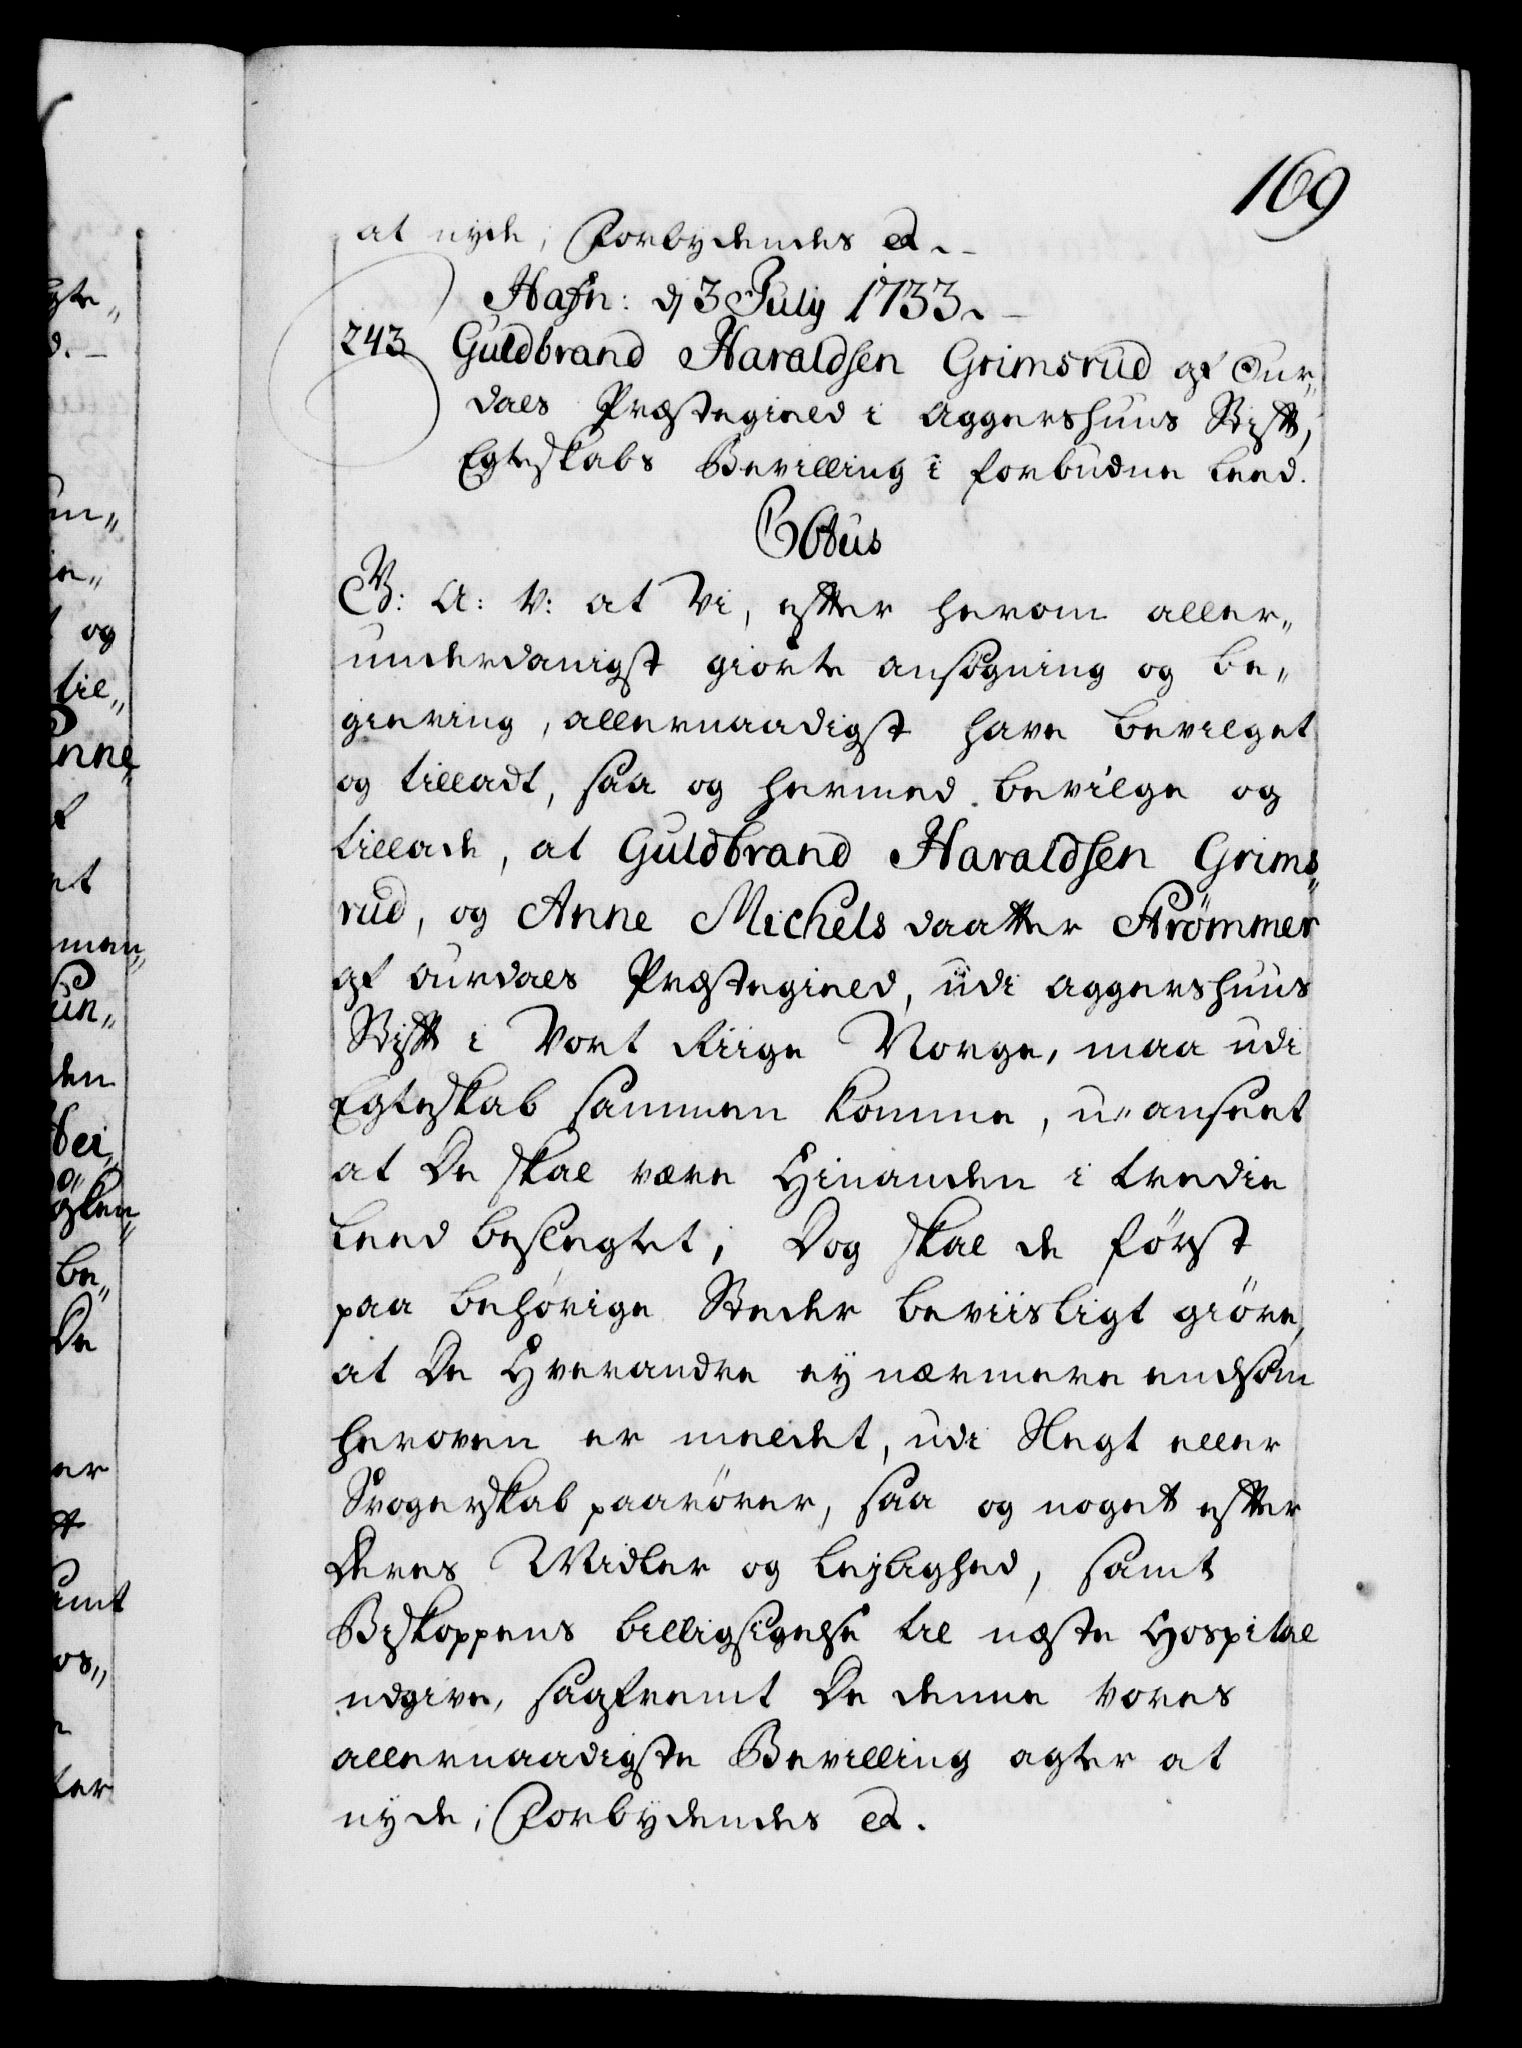 169
at nyde, Forbydendes et.
Hafn: d 3 July 1733.
243 Guldbrand Haraldsen Grimsrud af Our„
dals Præstegield i Aggershuus Stift,
Egteskabs Bevilling i forbudne Leed.
C6tus
G: A: V: at Vi, efter herom aller„
underdanigst giorte ansøgning og be„
giering, allernaadigst have bevilget
og tilladt, saa og hermed bevilge og
tillade, at Guldbrand Haraldsen Grims„
rud, og Anne Michels daatter Strömmer
af Ourdals Præstegield, udi Aggershuus
Stift i Vort Riige Norge, maa udi
Egteskab sammen komme, u-anseet
at De skal være Hinanden i tredie
Leed beslegtet, Dog skal de först
paa behörige Steder beviisligt giöre,
at De Hverandre ey nærmere end som
heroven er meldet, udi Slegt eller
Svogerskab paarörer, saa og noget efter
Deres Midler og lejlighed, samt
Biskoppens billigsigelse til næste Hospital
udgive, saafremt De denne Vores
allernaadigste Bevilling agter at
nyde, Forbydendes et.